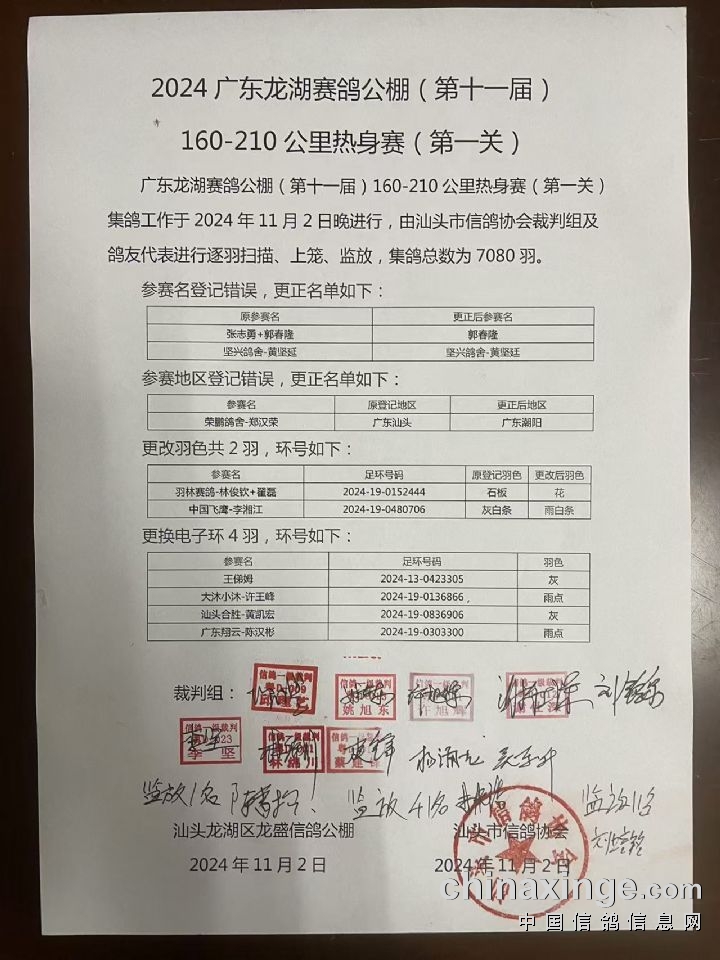 2024 广东龙湖赛鸽公棚（第十一届）
160-210 公里热身赛（第一关）
广东龙湖赛鸽公棚（第十一届）160-210 公里热身赛（第一关）
集鸽工作于 2024 年 11 月 2 日晚进行，由汕头市信鸽协会裁判组及
鸽友代表进行逐羽扫描、上笼、监放，集鸽总数为 7080 羽。
参赛名登记错误，更正名单如下：
原参赛名 更正后参赛名
张志勇+郭春隆 郭春隆
坚兴鸽舍-黄坚延 坚兴鸽舍-黄坚廷
参赛地区登记错误，更正名单如下：
参赛名 原登记地区 更正后地区
荣鹏鸽舍-郑汉荣 广东汕头 广东潮阳
更改羽色共 2 羽，环号如下：
参赛名 足环号码 原登记羽色 更改后羽色
羽林赛鸽-林俊钦+翟磊 2024-19-0152444 石板 花
中国飞鹰-李湘江 2024-19-0480706 灰白条 雨白条
更换电子环 4 羽，环号如下：
参赛名 足环号码 羽色
王俤姆 2024-13-0423305 灰
大沐小沐-许王峰 2024-19-0136866 雨点
汕头合胜-黄凯宏 2024-19-0836906 灰
广东翔云-陈汉彬 2024-19-0303300 雨点
裁判组：
信鸽一级裁判
姚旭东
许旭辉
信鸽一级裁判
李坚
监放1名 监放4名 监放1名
汕头龙湖区龙盛信鸽公棚 汕头市信鸽协会
2024 年 11 月 2 日 2024 年 11 月 2 日
chinaxinge.com
中国信鸽信息网